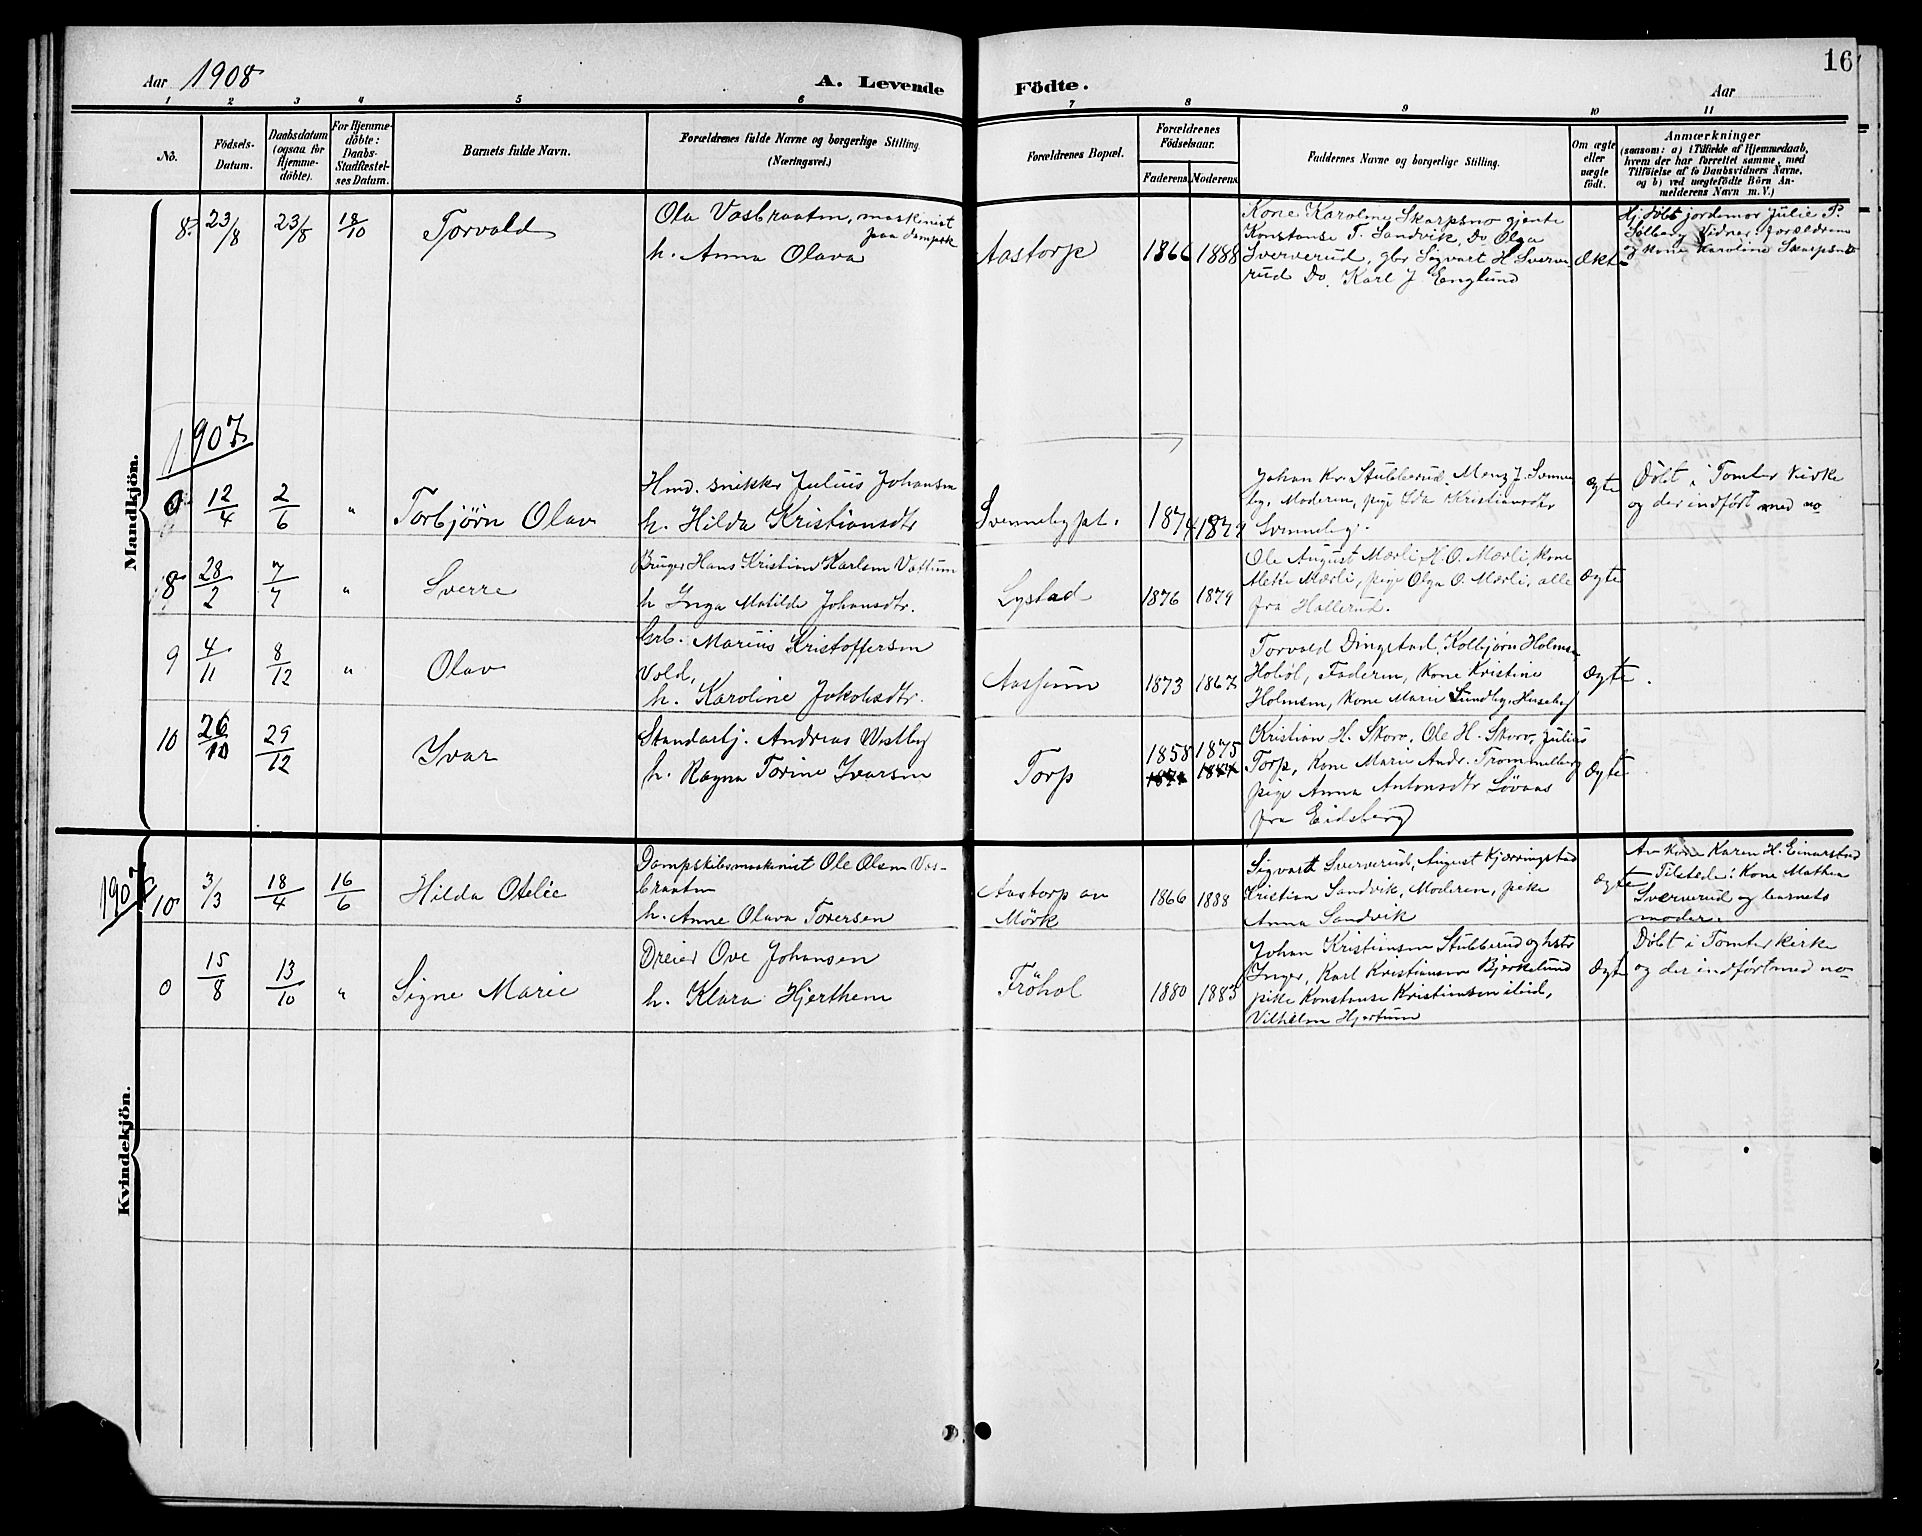 16
Aar 1908
A. Levende
Födte.
Aar
1 2 3 4 5 6 7 8 9 10 11
No.
Födsels-
Datum.
Daabsdatum
(ogsaa for
Hjemme-
döbte).
For Hjemme-
döbte:
Daabs-
Stadfæstel-
ses Datum.
Barnets fulde Navn.
Forældrenes fulde Navne og borgerlige Stilling.
(Næringsvei.)
Forældrenes Bopæl.
Forældrenes
Födselsaar.
Faderens. Moderens.
Faddernes Navne og borgerlige Stilling.
Om ægte
eller
uægte
födt.
Anmærkninger
(saasom: a) i Tilfælde af Hjemmedaab,
hvem der har forrettet samme, med
Tilföielse af to Daabsvidners Navne,
og b) ved uægtefödte Börn An-
melderens Navn m. V.)
Mandkjön.
8. 23/8 23/8 18/10 Torvald
Ola Vasbraaten, maskinist
paa dampsk
h. Anna Olava
Aastorp 1866 1888
Kone Karoline Skarpsno gjente
Konstanse T. Sandvik, Do Olga
Sververud, gbr Sigvart H. Sverve-
rud Do. Karl J Englund
Ekte
Hj. døbt jordemor Julie P.
Solberg Vidner Forældrene
og kone Karoline Skarpsno
1907
0 12/4 2/6 " Torbjørn Olav
Hmd. snikker Julius Johansen
h. Hilda Kristiansdtr
Svennebypl. 1874 1877
Johan Kr. Stubberud, Menz J. Svenne-
by, Moderen, pige Ida Kristiansdtr
Svenneby.
Ægte
Døbt i Tomter Kirke
og der indført med no
8 28/2 7/7 " Sverre
Bruger Hans Kristian Karlsen Vattum
h Inga Matilde Johansdtr.
Lystad 1876 1879
Ole August Mærli H. O. Mærli, kone
Mette Mærli, pige Olga O. Mærli, alle
fra Hallerud.
Ægte
9 4/11 8/12 " Olav
Grb. Marius Kristoffersen
Vold,
h. Karoline Jakobsdtr.
Aassum 1873 1867
Torvald Dingstad, Kolbjørn Holmsen
Hobøl, Faderen, Kone Kristine
Holmsen, kone Marie Sundby, Huseby
Ægte.
10 26/10 29/12 Ivar
Standartj. Andreas Westby
h. Ragna Torine Ivarsen
Torp 1858 1875
Kristian H. Skow, Ole H. Skow, Julius
Torp, Kone Marie Andr. Trommelberg
pige Anna Antonsdtr Løvaas
fra Eidsberg
Ægte
Kvindekjön.
1907
10 3/3 18/4 16/6 Hilda Otelie
Dampskibsmaskinist Ole Olsen Vas-
braaten
h. Anne Olava Toversen
Aastorp av
Mörk
1866 1888
Sigvart Sververud, August Kjærringstad
Kristian Sandvik, Moderen, pike
Anna Sandvik
Ægte
Av Kone Karen H. Einarstad
Tilstede: Kone Mathea
Sververud og barnets
moder.
0 15/8 13/10 " Signe Marie
Dreier Ove Johansen
h. Klara Hjerthem
Fröhol 1880 1883
Johan Kristiansen Stubberud og hstr
Inger, Karl Kristiansen Bjerkelund
pike Konstanse Kristiansen ibid,
Vilhelm Hjertum
Ægte
Døbt i Tomter kirke
og der indført med no